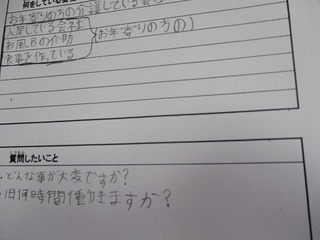 何をしている
お年寄りの方の介護している会社
入居している会社
お風呂の介助
(お年寄りの方の)
食事を作っている
質問したいこと
・どんな事が大変ですか?
・1日何時間働きますか?